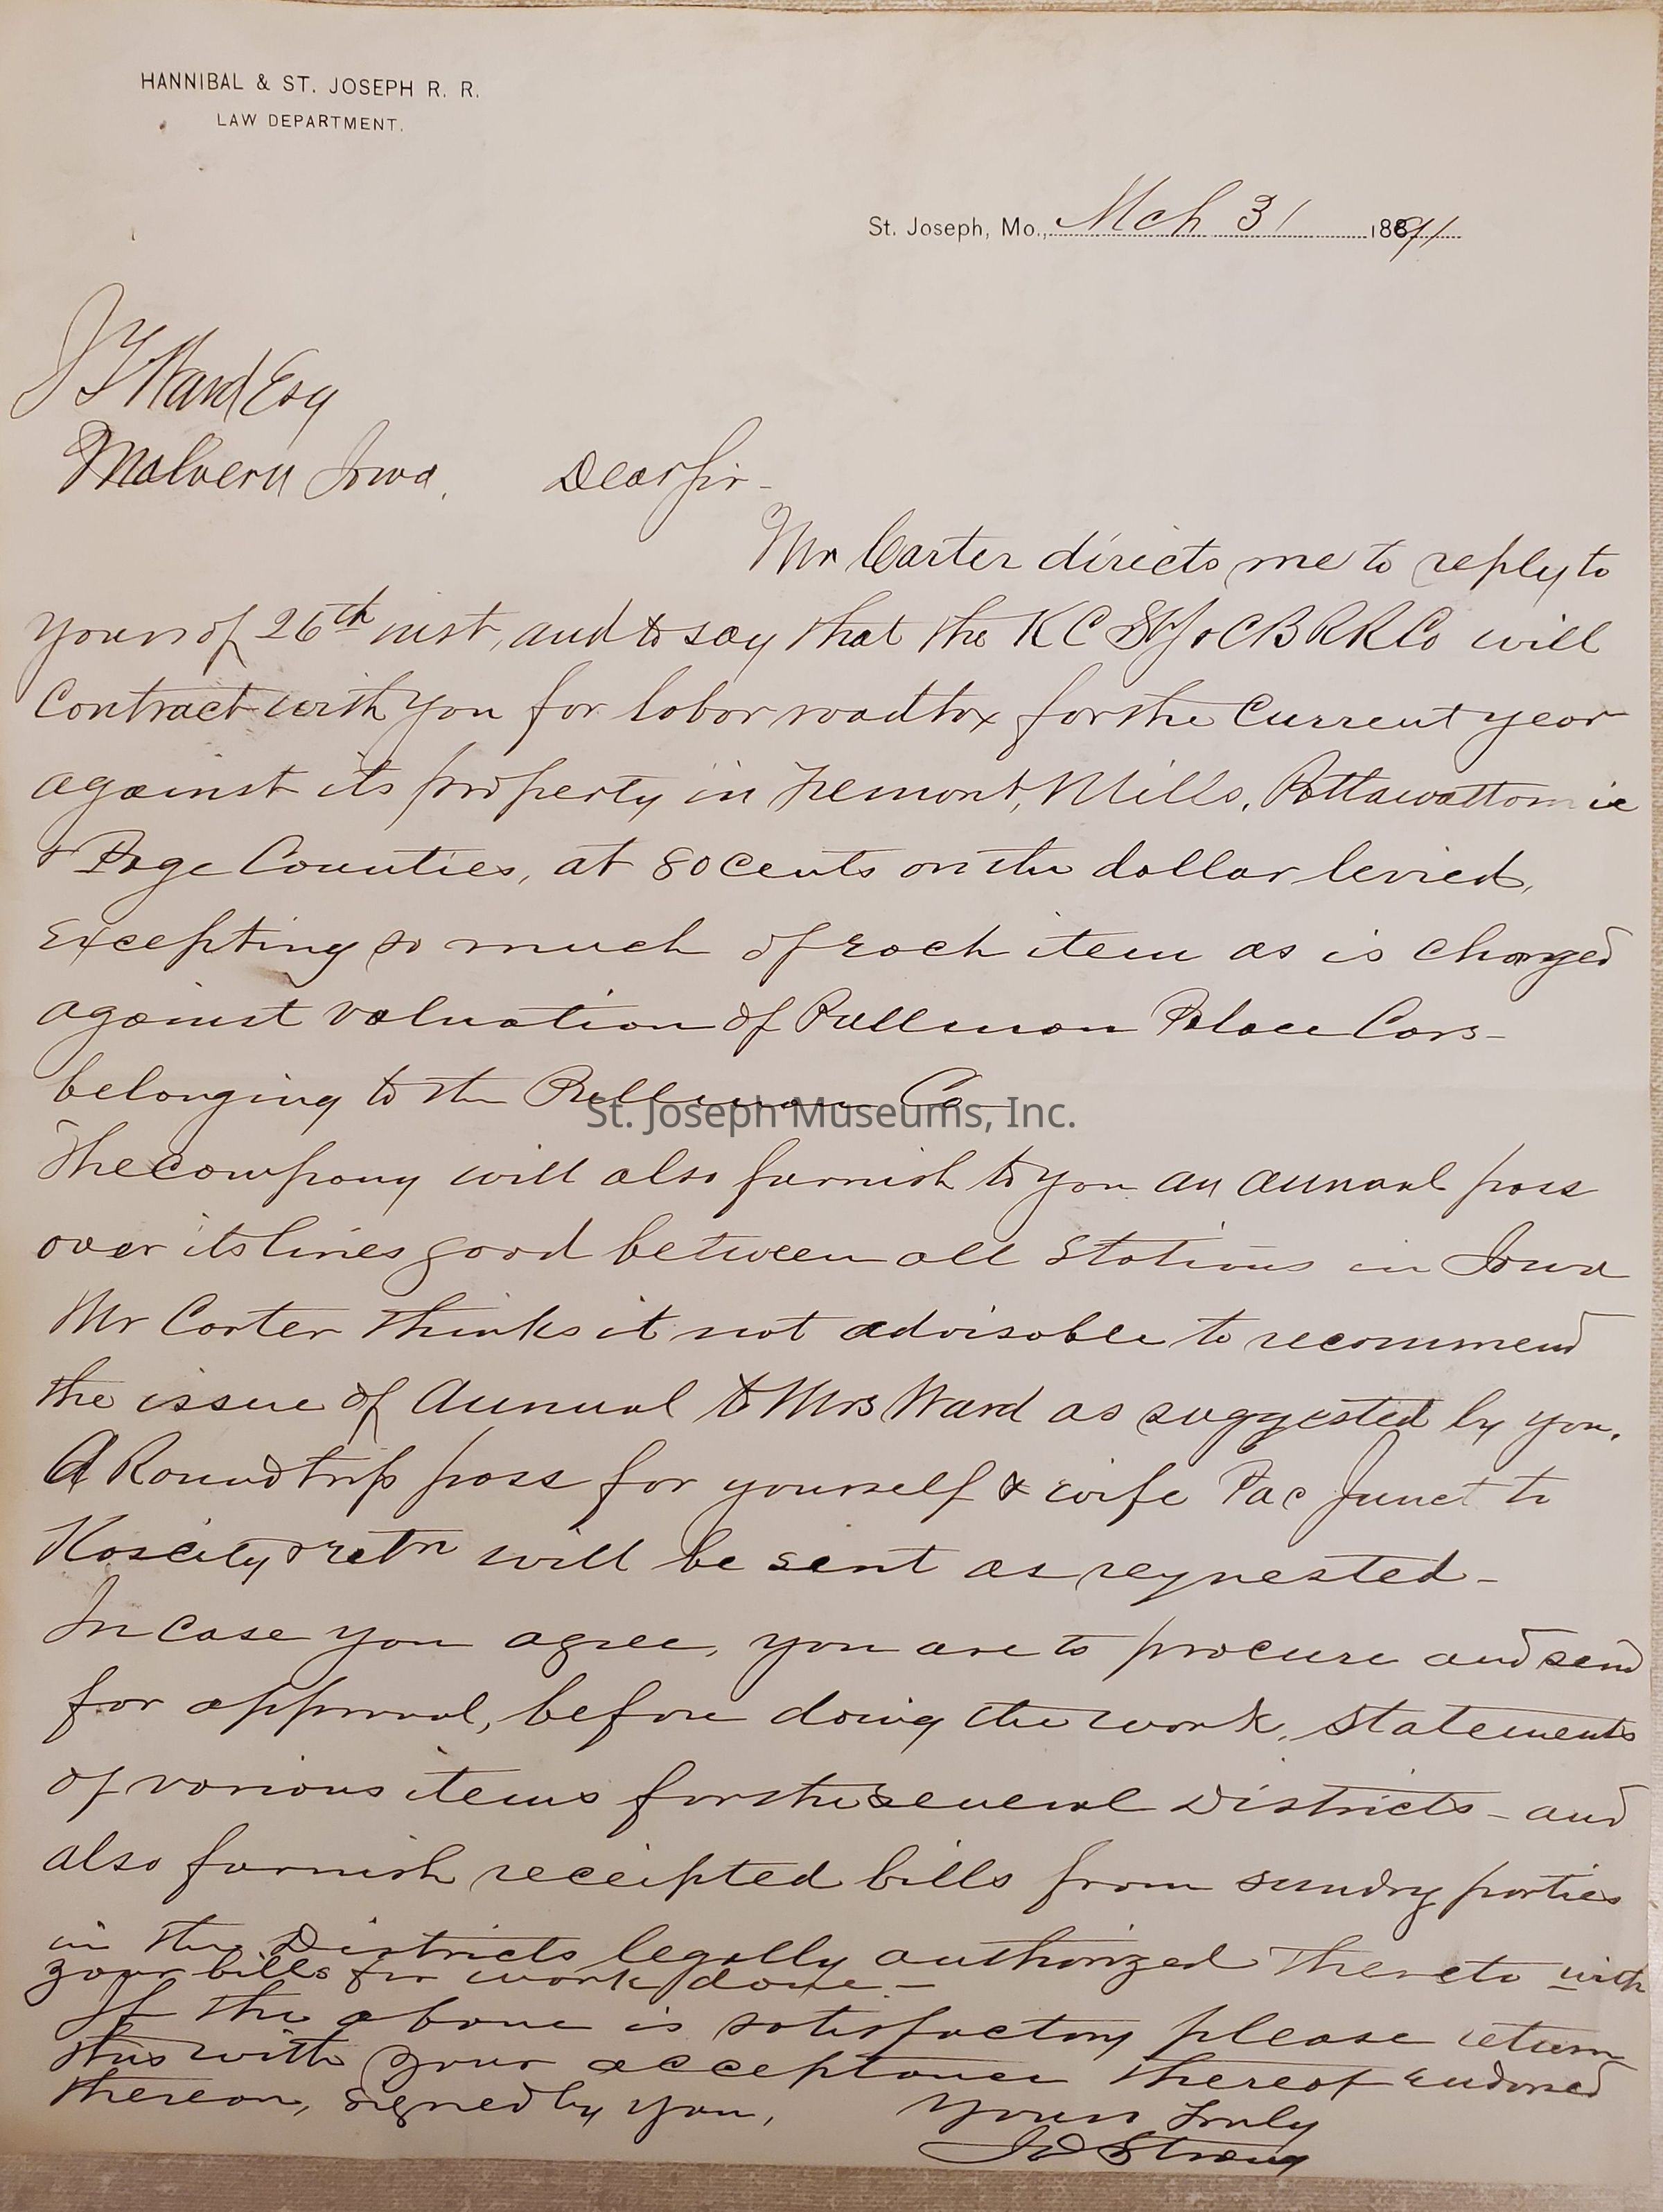 HANNIBAL & ST. JOSEPH R. R.
LAW DEPARTMENT.
St. Joseph, Mo., Mch 31 1891
Ward Esq
Malvern Iowa. Dear Sir -
Mr Carter directs me to reply to
yours of 26th inst, and to say that the KC StJ & CB RR Co will
Contract with you for labor road tax for the Current year
against its property in Fremont, Mills, Pottawattomie
& Page Counties, at 80 cents on the dollar levied,
Excepting so much of each item as is charged
against valuation of Pullman Palace Cars -
belonging to the Pullman Co
St. Joseph Museums, Inc.
The Company will also furnish to you an annual pass
over its lines good between all Stations in Iowa
Mr Carter thinks it not advisable to recommend
the issue of Annual to Mrs Ward as suggested by you.
A Round trip pass for yourself & wife Pac Junct to
Kas City & retn will be sent as requested -
In Case you agree, you are to procure and send
for approval, before doing the work, statements
of various items for the several Districts - and
also furnish receipted bills from sundry parties
in the Districts legally authorized thereto with
your bills for work done. -
If the above is satisfactory please return
this with your acceptance thereof endorsed
thereon, signed by you,
Yours Truly
Strong